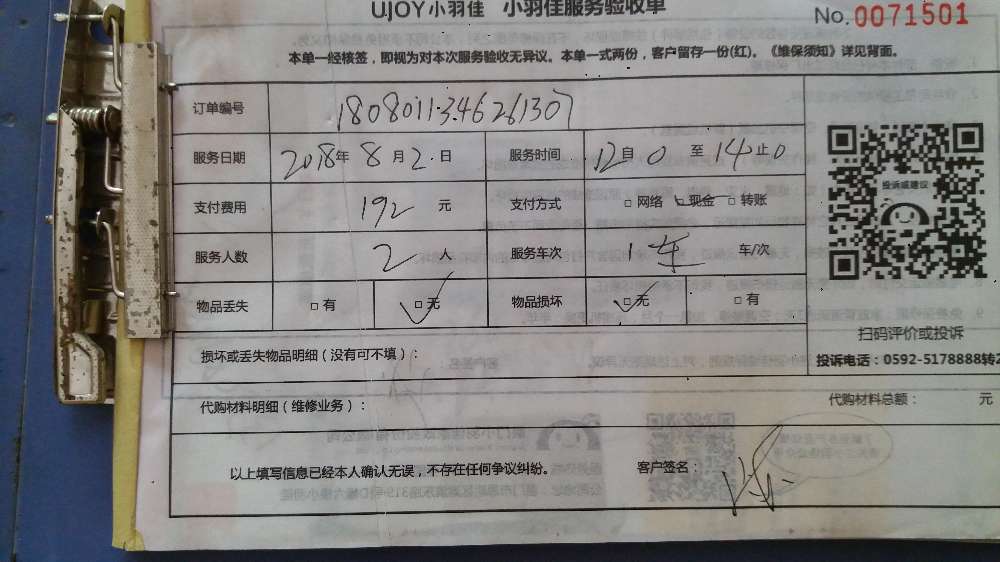 UJOY小羽佳 小羽佳服务验收单
No.0071501
本单一经核签，即视为对本次服务验收无异议。本单一式两份，客户留存一份(红)。《维保须知》详见背面。
订单编号 18080113461307
服务日期 2018年8月2日 服务时间 12自0至14止0
支付费用 192元 支付方式 □网络 □现金 □转账
服务人数 2人 服务车次 1车 车/次
物品丢失 □有 □无 物品损坏 □无 □有
投诉或建议
扫码评价或投诉
投诉电话：0592-5178888转2
损坏或丢失物品明细（没有可不填）：
代购材料明细（维修业务）： 代购材料总额： 元
以上填写信息已经本人确认无误，不存在任何争议纠纷。 客户签名：